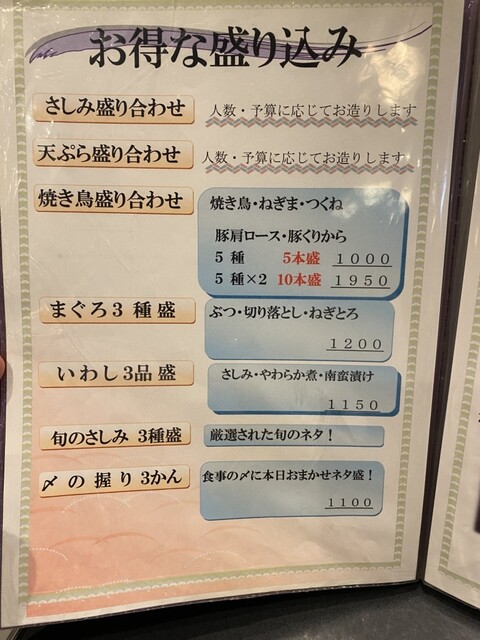 お得な盛り込み
さしみ盛り合わせ 人数・予算に応じてお造りします
天ぷら盛り合わせ 人数・予算に応じてお造りします
焼き鳥盛り合わせ 焼き鳥・ねぎま・つくね
豚肩ロース・豚くりから
5種 5本盛 1000
5種×2 10本盛 1950
まぐろ3種盛 ぶつ・切り落とし・ねぎとろ
1200
いわし3品盛 さしみ・やわらか煮・南蛮漬け
1150
旬のさしみ 3種盛 厳選された旬のネタ!
〆の握り3かん 食事の〆に本日おまかせネタ盛!
1100